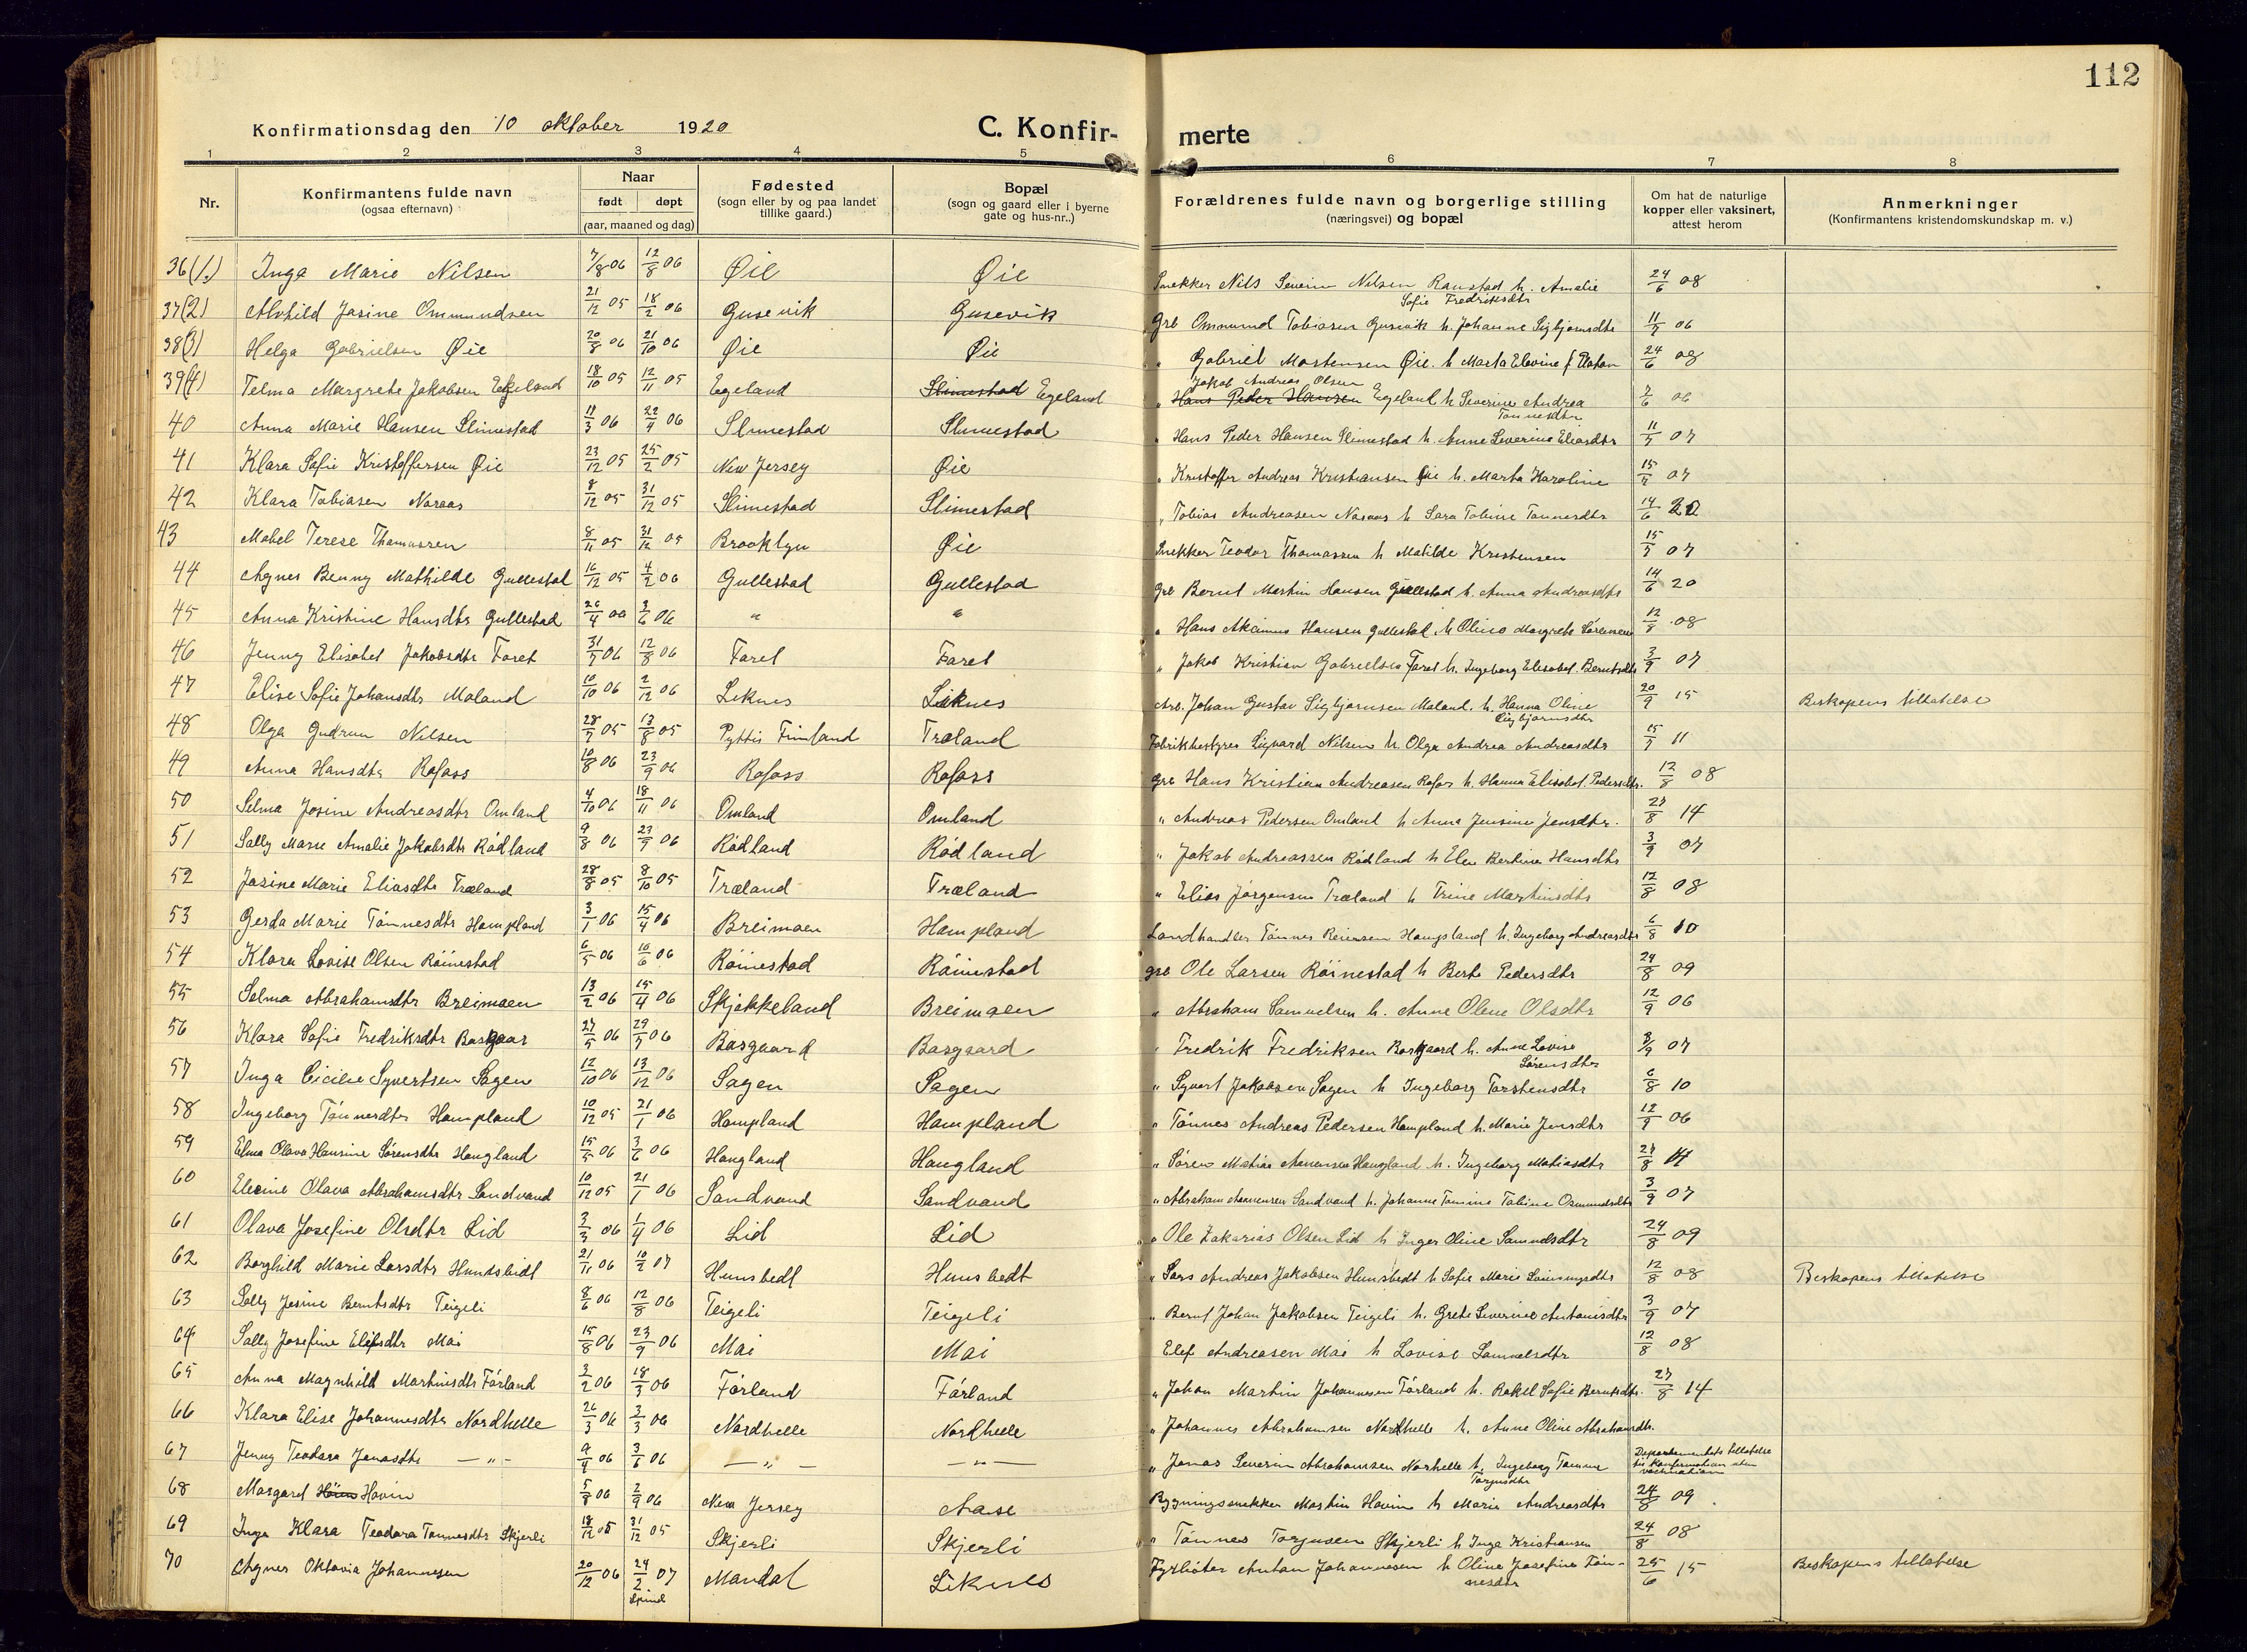 112
Konfirmationsdag den 10 oktober 1920
C. Konfir-
merte
1 2 3 4 5 6 7 8
Nr.
Konfirmantens fulde navn
(ogsaa efternavn)
Naar
født døpt
(aar, maaned og dag)
Fødested
(sogn eller by og paa landet
tillike gaard.)
Bopæl
(sogn og gaard eller i byerne
gate og hus-nr..)
Forældrenes fulde navn og borgerlige stilling
(næringsvei) og bopæl
Om hat de naturlige
kopper eller vaksinert,
attest herom
Anmerkninger
(Konfirmantens kristendomskundskap m. v.)
36(1.) Inga Marie Nilsen 7/8 06 12/8 06 Øie Øie Snekker Nils Severin Nilsen Ranestad h. Amalie 24/6 08
Sofie Fredriksdtr
37(2) Alvhild Jasine Ommundsen 21/12 05 18/2 06 Gusevik Gusevik Grb Ommund Tobiasen Gusevik h. Johanne Sigbjørnsdtr 11/7 06
38(3) Helga Gabrielsen Øie 20/8 06 21/10 06 Øie Øie " Gabriel Mortensen Øie. h Marta Elovine 24/6 08
Jakob Andreas Olsen
39(4) Telma Margrete Jakobsen Egeland 18/10 05 12/11 05 Egeland Slimestad Egeland " Hans Peder Hansen Egeland h Severine Andrea 7/6 06
Tønnesdtr
40 Anna Marie Hansen Slimestad 11/3 06 22/4 06 Slimestad Slimestad " Hans Peder Hansen Slimestad h. Anne Severine Eliasdtr 11/7 07
41 Klara Sofie Kristoffersen Øie 23/12 05 25/2 05 New Jersey Øie " Kristoffer Andreas Kristiansen Øie h. Marta Karoline 07
42 Klara Tobiasen Noraas 8/12 05 31/12 05 Slimestad Slimestad " Tobias Andreasen Noraas h Sara Tobine Tønnesdtr 14/6 20
43 Mabel Terese Thomassen 8/11 05 31/12 05 Brooklyn Øie Snekker Teodor Thomassen h Matilde Kristensen 07
44 Agnes Benny Mathilde Gullestad 16/12 05 4/2 06 Gullestad Gullestad Grb Bernt Martin Hansen Gullestad h. Anna Andreasdtr 14/6 20
45 Anna Kristine Hansdtr Gullestad 26/4 06 3/6 06 " " " Hans Hansen Gullestad h Oline Margrete Sørensen 12/8 08
46 Jenny Elisabet Jakobsdtr Faret 31/7 06 12/8 06 Faret Faret " Jakob Kristian Gabrielsen Faret h. Ingeborg Elisabet Berntsdtr 3/9 07
47 Elise Sofie Johansdtr Moland 10/10 06 2/12 06 Liknes Liknes Arb. Johan Gustav Sigbjørnsen Moland, h. Hanna Oline 20/9 15 Biskopens tillatelse
Sigbjørnsdtr
48 Olga Gudrun Nilsen 28/7 05 13/8 05 Pyttis Finnland Træland Fabrikbestyrer Sigvard Nilsen h. Olga Andrea Andreasdtr 11
49 Anna Hansdtr Rafoss 10/8 06 23/9 06 Rafoss Rafoss Grb Hans Kristian Andreasen Rafos h. Hanna Elisabet Pedersdtr. 12/8 08
50 Selma Josine Andreasdtr Omland 4/10 06 18/11 06 Omland Omland " Andreas Pedersen Omland h Anna Jensine Jensdtr. 27/8 14
51 Sally Marie Amalie Jakobsdtr Rødland 9/8 06 23/9 06 Rødland Rødland " Jakob Andreassen Rødland h Elen Bertine Hansdtr 3/9 07
52 Jasine Marie Eliasdtr Træland 28/8 05 8/10 05 Træland Træland " Elias Jørgensen Træland h Trine Martinsdtr 12/8 08
53 Gerda Marie Tønnesdtr Hompland 3/1 06 15/4 06 Breimoen Hompland Landhandler Tønnes Reiersen Hompland h. Ingeborg Andreasdtr 6/8 10
54 Klara Lovise Olsen Røinestad 6/5 06 10/6 06 Røinestad Røinestad grb Ole Larsen Røinestad h Berte Pedersdtr 24/8 09
55 Selma Abrahamsdtr Breimoen 13/2 06 15/4 06 Skjekkeland Breimoen " Abraham Samuelsen h. Anne Olene Olsdtr 12/9 06
56 Klara Sofie Fredriksdtr Basgaar 27/5 06 29/7 06 Basgaard Basgaard " Fredrik Fredriksen Basgaard h. Anne Lovise 3/9 07
Sørensdtr
57 Inga Cicilie Syvertsen Sagen 12/10 06 13/12 06 Sagen Sagen " Syvert Jakobsen Sagen h Ingeborg Torstensdtr 6/8 10
58 Ingeborg Tønnesdtr Hompland 10/12 05 21/1 06 Hompland Hompland " Tønnes Andreas Pedersen Hompland h. Marie Jensdtr 12/9 06
59 Elma Olava Hansine Sørensdtr Haugland 15/5 06 3/6 06 Haugland Haugland " Søren Matias Haugland h. Ingeborg Matiasdtr 27/8 14
60 Elesine Olava Abrahamsdtr Sandvand 10/12 05 21/1 06 Sandvand Sandvand " Abraham Sandvand h. Johanne Tomine Tobine Osmundsdtr 3/9 07
61 Olava Josefine Olsdtr Lid 3/3 06 1/4 06 Lid Lid " Ole Zakarias Olsen Lid h Inger Oline Samuelsdtr 24/8 09
62 Borghild Marie Larsdtr Hunsbedt 21/11 06 10/2 07 Hunsbedt Hunsbedt " Lars Andreas Jakobsen Hunsbedt h Sofie Marie 12/8 08 Biskopens tillatelse
63 Sally Jesine Berntsdtr Teigeli 8/6 06 12/8 06 Teigeli Teigeli " Bernt Johan Jakobsen Teigeli h. Grete Severine Antonisdtr 3/9 07
64 Sally Josefine Elefsdtr Moi 15/8 06 23/9 06 Moi Moi Elef Andreasen Moi h Lovise Samuelsdtr 12/8 08
65 Anna Magnhild Martinsdtr Førland 3/2 06 18/3 06 Førland Førland " Johan Martin Johannesen Førland h. Rakel Sofie Berntsdtr. 27/8 14
66 Klara Elise Johannesdtr Nordhelle 26/3 06 3/3 06 Nordhelle Nordhelle " Johannes Abrahamsen Nordhelle h. Anne Oline Abrahamsdtr.
67 Jenny Teodora Jonasdtr — " — 06 3/6 06 — " — — " — " Jonas Severin Abrahamsen Norhelle h, Ingeborg Tomine Departementets tillatelse
Torgusdtr til konfirmation uten
vaccination
68 Margard Hövin Hovin 5/8 06 2/9 06 New Jersey Aase Bygningssnekker Martin Hovin h Marie Andreasdtr 24/8 09
69 Inga Klara Teodora Tønnesdtr Skjerli 18/12 05 31/12 05 Skjerli Skjerli " Tønnes Torgusen Skjerli h Inga Kristiansen 24/8 08
70 Agnes Oktavia Johannesen 20/12 06 24/2 07 Mandal Liknes Fyrbøter Anton Johannesen h Oline Josefine Tøn- 25/6 15 Biskopens tillatelse
Spind nesdtr